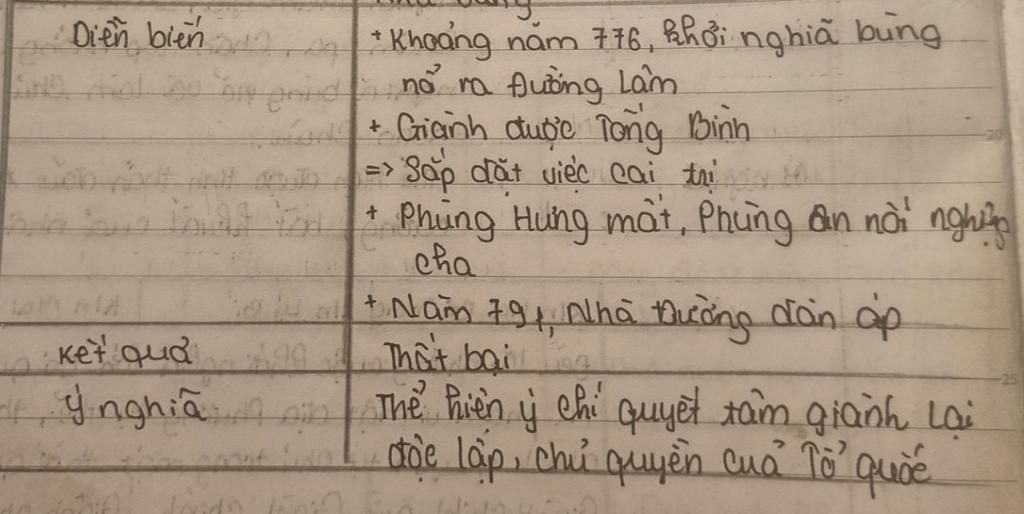 Diễn biến
+ Khoảng năm 776, khởi nghiã bùng
nổ ra Đường Lâm
+ Giành được Tống Bình
=> Sắp đặt việc cai trị
+ Phùng Hưng mất, Phùng An nối nghiệp
cha
+ Năm 791, Nhà Đường đàn áp
Kết quả
Thất bại
Ý nghiã
Thể hiện ý chí quyết tâm giành lại
độc lập, chủ quyền cuả Tổ quốc